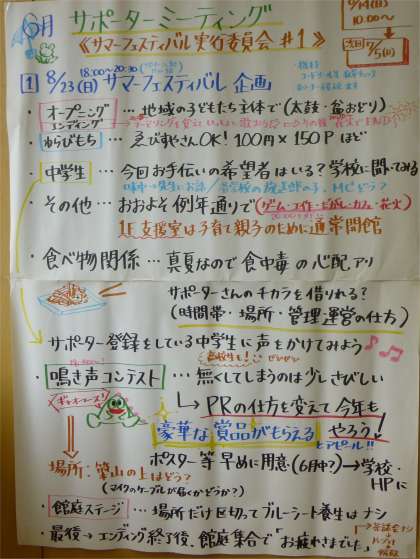 6月 サポーターミーティング
《サマーフェスティバル実行委員会 #1》
6/14(日)
10:00〜
次回 7/5(日)
1 8/23(日) 18:00〜20:30 サマーフェスティバル 企画
・オープニング
エンディング
… 地域の子どもたち主体で(太鼓・盆おどり)
・わらびもち … ゑびすやさんOK! 100円×150Pほど
・中学生 … 今回お手伝いの希望者はいる?学校に聞いてみる
・その他 … おおよそ例年通りで(ゲーム・工作・カフェ・花火)
1F支援室は子育て親子のために通常開館
・食べ物関係 … 真夏なので食中毒の心配アリ
サポーターさんのチカラを借りれる?
(時間帯・場所・管理運営の仕方)
サポーター登録をしている中学生に声をかけてみよう
高校生も!
・鳴き声コンテスト … 無くしてしまうのは少しさびしい
ギャオース!
→PRの仕方を変えて今年も
豪華な賞品がもらえる やろう!
とアピール!!
場所:築山の上はどう?
(マイクのケーブルが届くかどうか?)
ポスター等 早めに用意(6月中?)→学校・
HPに
・館庭ステージ … 場所だけ区切ってブルーシート養生はナシ
・最後→エンディング終了後、館庭集合で「お疲れさまでした」